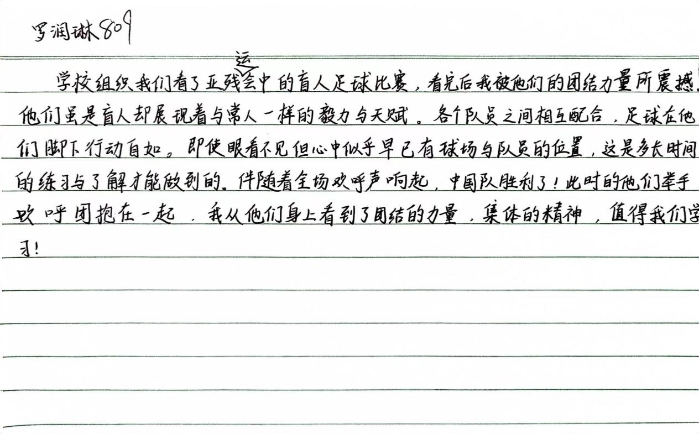 罗润琳809
学校组织我们看了亚残运会中的盲人足球比赛，看完后我被他们的团结力量所震撼！
他们虽是盲人却展现着与常人一样的毅力与天赋。各个队员之间相互配合，足球在他
们脚下行动自如。即使眼看不见但心中似乎早已有球场与队员的位置，这是多长时间
的练习与了解才能做到的。伴随着全场欢呼声响起，中国队胜利了！此时的他们举手
欢呼团抱在一起，我从他们身上看到了团结的力量，集体的精神，值得我们学
习！